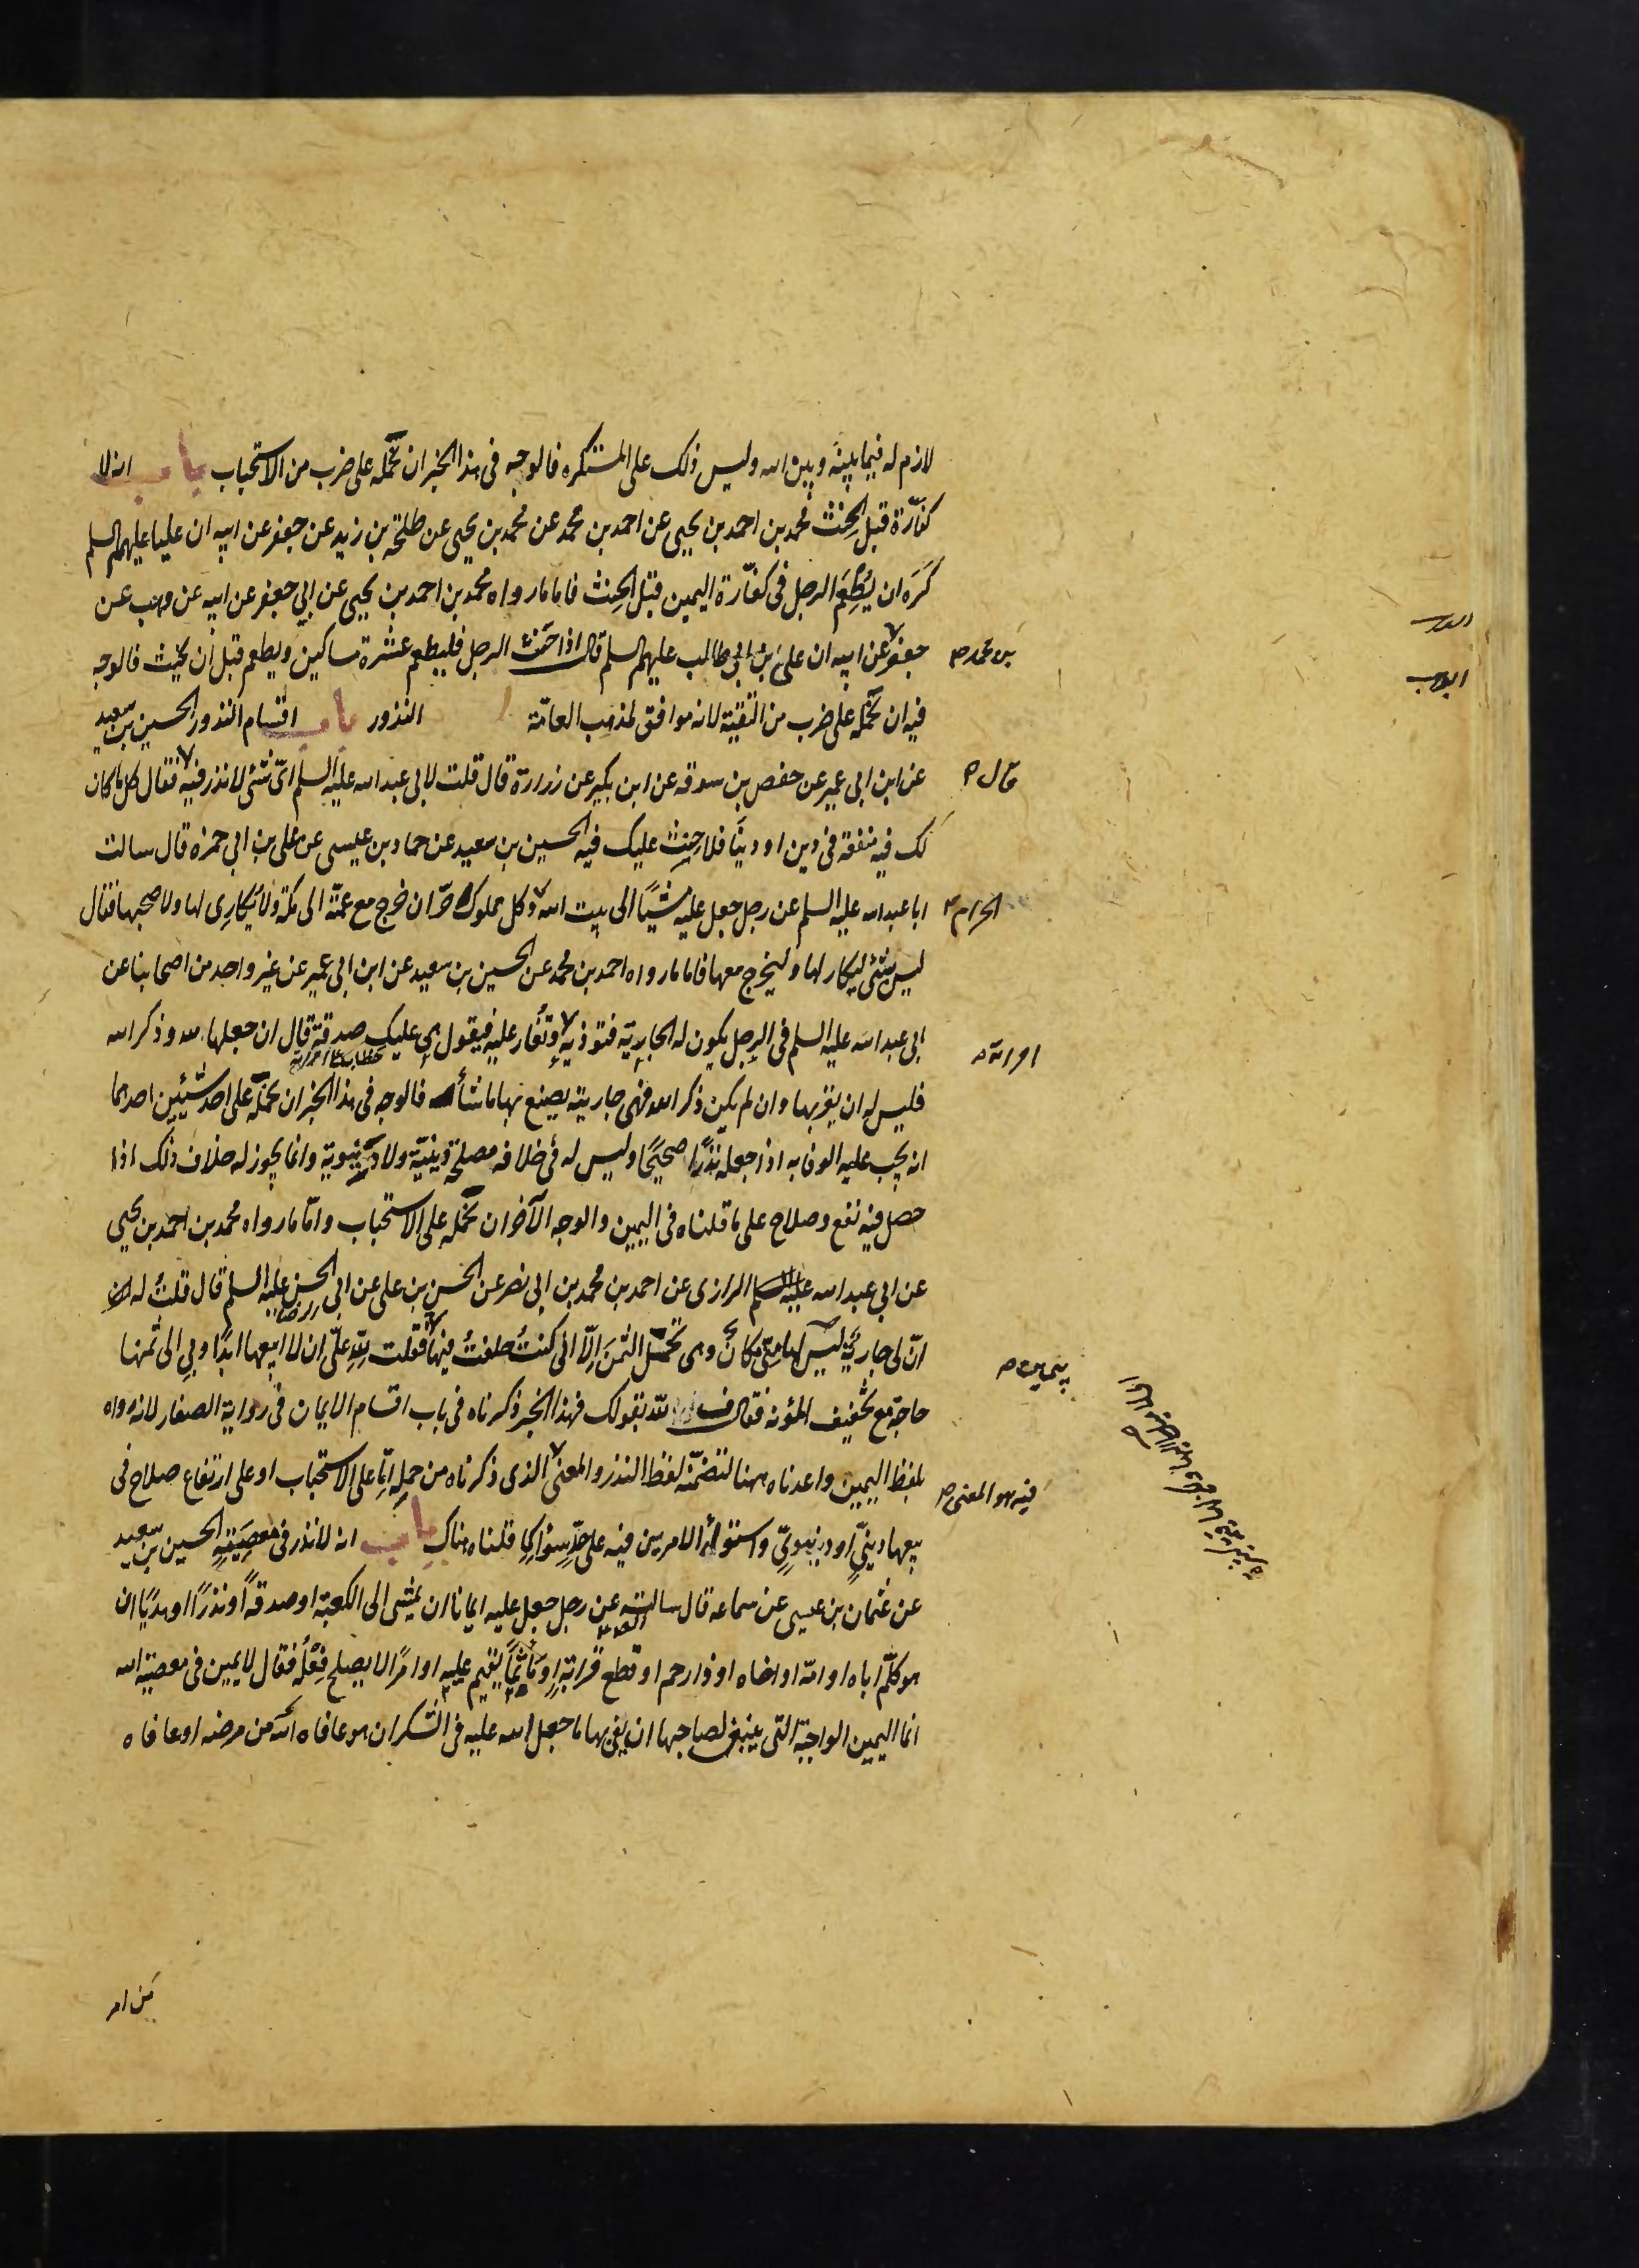 لازم له فيما بينه وبين الله وليس ذلك على المستكره فالوجه فى هذا الخبر ان نحمله على ضرب من الاستحباب باب انه لا
كفّارة قبل الحنث محمد بن احمد بن يحيى عن احمد بن محمد عن محمد بن يحيى عن طلحة بن زيد عن جعفر عن ابيه ان عليا عليهم السلم
كره ان يُطعِم الرجل فى كفّارة اليمين قبل الحنث فاما ما رواه محمد بن احمد بن يحيى عن ابى جعفر عن ابيه عن وهب عن
جعفر عن ابيه ان على بن ابى طالب عليهم السلم قال اذا حنث الرجل فليطعم عشرة مساكين ويطعم قبل ان يحنث فالوجه
بن محمد صح
فيه ان نحمله على ضرب من التقية لانه موافق لمذهب العامّة النذور باب اقسام النذور الحسين بن سعيد
عن ابن ابى عمير عن حفص بن سوقه عن ابن بكير عن زرارة قال قلت لابى عبد الله عليه السلم اىّ شئ لا نذر فيه فقال كل ما كان
قال
لك فيه منفعة فى دين او دنيا فلا حنث عليك فيه الحسين بن سعيد عن حماد بن عيسى عن على بن ابى حمزه قال سالت
ابا عبد الله عليه السلم عن رجل جعل عليه مشيًا الى بيت الله وكل مملوك حرّ ان خرج مع عمّته الى مكة ولا يكارى لها ولا صحبها فقال
الحرام
ليس بشئ ليكار لها وليخرج معها فاما ما رواه احمد بن محمد عن الحسين بن سعيد عن ابن ابى عمير عن غير واحد من اصحابنا عن
ابى عبد الله عليه السلم فى الرجل يكون له الجارية فتوذيه وتغار عليه فيقول هى عليك صدقة قال ان جعلها لله وذكر الله
امراته
فليس له ان يقربها وان لم يكن ذكر الله فهى جاريته يصنع بها ما شأ فالوجه فى هذا الخبر ان نحمله على احد شيئين احدهما
انه يجب عليه الوفا به اذا جعله نذرًا صحيحًا وليس له فى خلافه مصلحة دينيّة ولا دنيوية وانما يجوز له خلاف ذلك اذا
حصل فيه نفع وصلاح على ما قلناه فى اليمين والوجه الآخر ان نحمله على الاستحباب وامّا ما رواه محمد بن احمد بن يحيى
عن ابى عبد الله الرازى عن احمد بن محمد بن ابى نصر عن الحسن بن على عن ابى الحسن عليه السلم قال قلت له
انّ لى جارية ليس لها منّى مكان وهى تحتمل الثمن الّا انى كنت حلفت فيها فقلت للّه علىّ ان لا ابيعها ابدًا وبى الى ثمنها
بيمين صح
حاجة مع تخفيف المؤنه فقال ف لله بقولك فهذا الخبر ذكرناه فى باب اقسام الايمان فى رواية الصفار لانه رواه
بلفظ اليمين واعدناه ههنا لتضمّنه لفظ النذر والمعنى الذى ذكرناه من حمله امّا على الاستحباب او على ارتفاع صلاح فى
فيه هو المعنى صح
بيعها دينىّ او دنيوىّ واستوأ الامرين فيه على حدّ سواء كما قلناه هناك باب انه لا نذر فى معصية الحسين بن سعيد
عن عثمان بن عيسى عن سماعه قال سالته عن رجل جعل عليه ايمانا ان يمشى الى الكعبة او صدقةً او نذرًا او هديًا ان
هو كلّم اباه او امّه او اخاه او ذا رحم او قطع قرابةٍ او مأثمًا يقيم عليه او امرًا لا يصلح فعله فقال لا يمين فى معصية الله
انما اليمين الواجبة التى ينبغى لصاحبها ان يفى بها ما جعل الله عليه فى الشكر ان هو عافاه الله من مرضه او عافاه
من امر